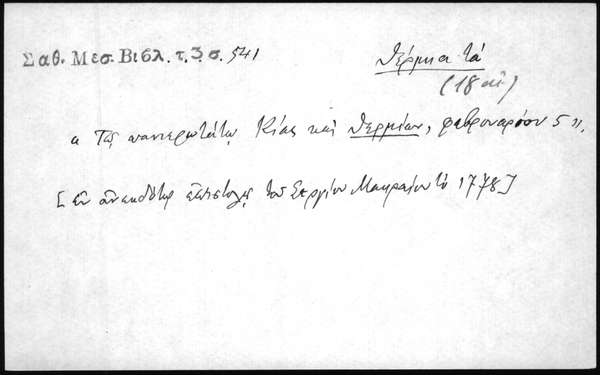 Σαθ. Μεσ. Βιβλ. τ. 3 σ. 541
Θέρμια τά
(18 αἰ)
« Τῷ πανιερωτάτῳ Κίας καὶ Θερμίων, φεβρουαρίου 5 ».
[ ἐν ἀνεκδότῳ ἐπιστολῇ τοῦ Σεργίου Μακραίου τῷ 1778 ]